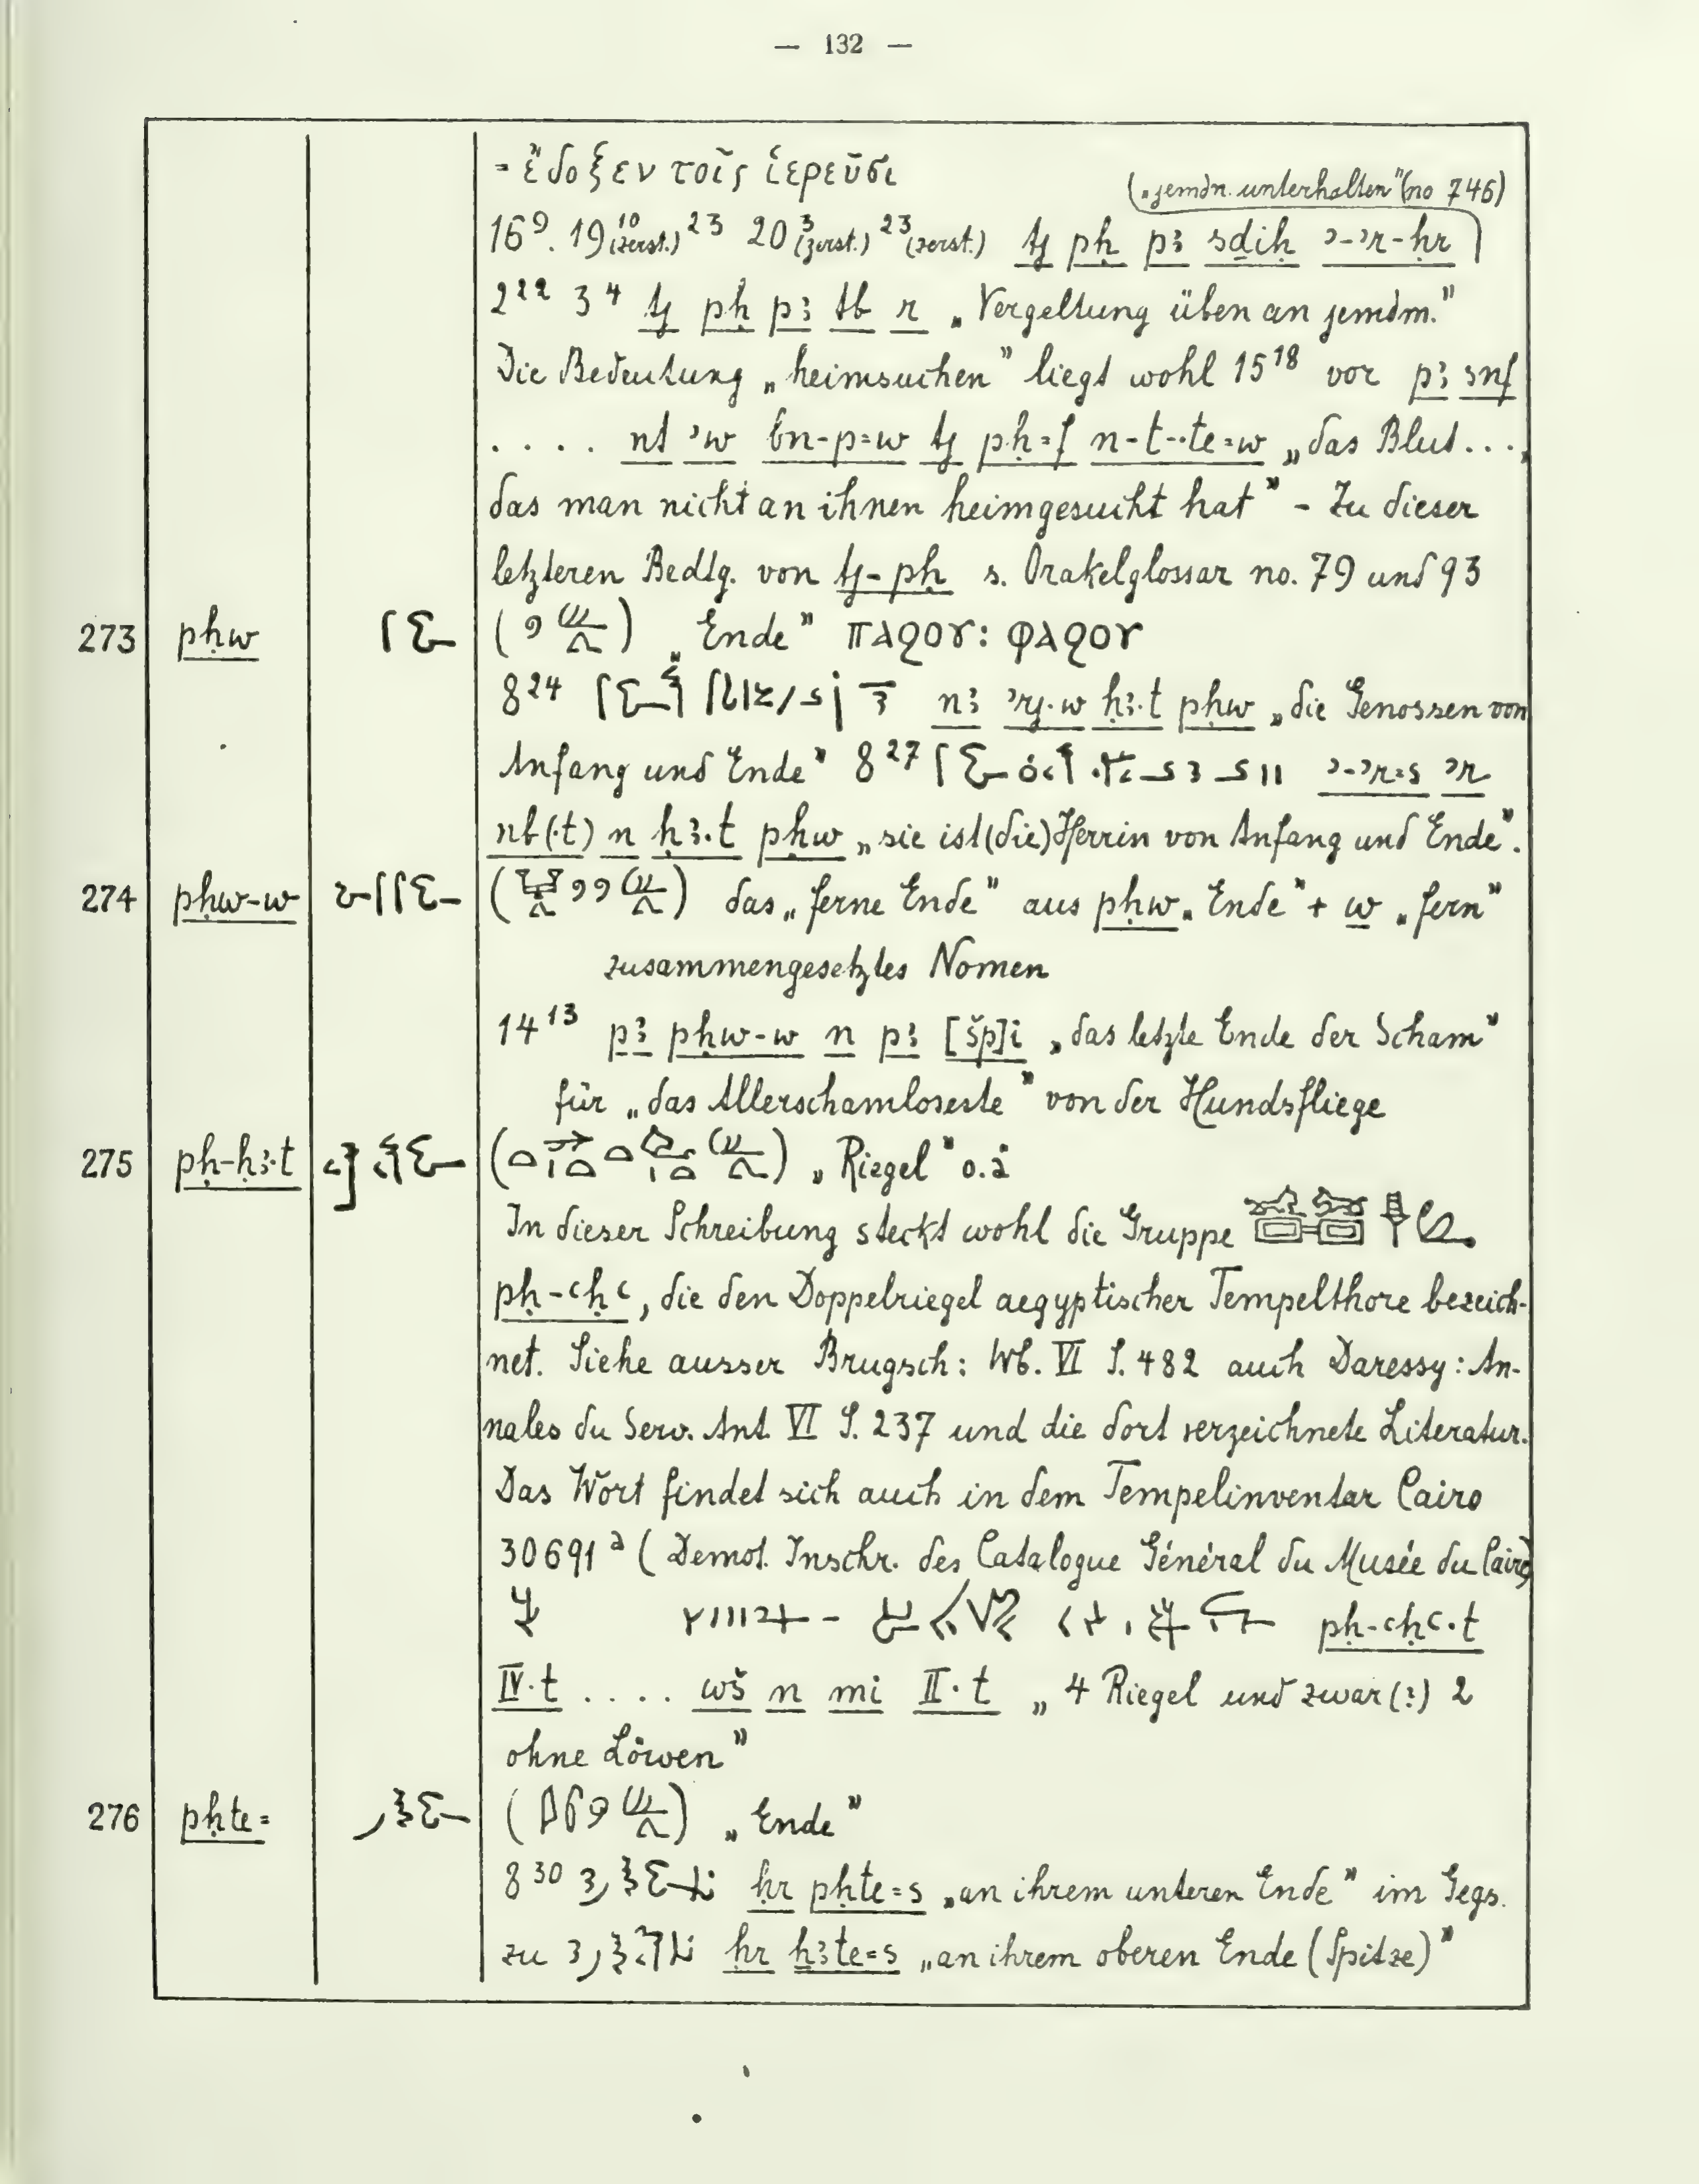 — 132 —
= ἔδοξεν τοῖς ἱερεῦσι
(„jemdn. unterhalten" (no 746)
16⁹. 19¹⁰(zerst.) ²³ 20³(zerst.) ²³(zerst.) tj pḥ pꜣ sdiḥ ꜣ-ꜣr-ḥr
2²² 3⁴ tj pḥ pꜣ tb r „Vergeltung üben an jemdm."
Die Bedeutung „heimsuchen" liegt wohl 15¹⁸ vor pꜣ snf
. . . . nt ꜣw bn-p=w tj pḥ=f n-t-·te=w „das Blut . . .,
das man nicht an ihnen heimgesucht hat" - Zu dieser
letzteren Bedtg. von tj-pḥ s. Orakelglossar no. 79 und 93
273 pḥw ( ) „Ende" ⲡⲁϩⲟⲩ: ⲫⲁϩⲟⲩ
8²⁴ nꜣ ꜣrj·w ḥꜣ·t pḥw „die Genossen von
Anfang und Ende" 8²⁷ ꜣ-ꜣr=s ꜣr
nb(·t) n ḥꜣ·t pḥw „sie ist (die) Herrin von Anfang und Ende".
274 pḥw-w ( ) das „ferne Ende" aus pḥw „Ende" + w „fern"
zusammengesetztes Nomen
14¹³ pꜣ pḥw-w n pꜣ [šp]i „das letzte Ende der Scham"
für „das Allerschamloseste" von der Hundsfliege
275 pḥ-ḥꜣ·t ( ) „Riegel" o.ä
In dieser Schreibung steckt wohl die Gruppe
pḥ-ꜥḥꜥ, die den Doppelriegel aegyptischer Tempelthore bezeich-
net. Siehe ausser Brugsch: Wb. VI S. 482 auch Daressy: An-
nales du Serv. Ant. VI S. 237 und die dort verzeichnete Literatur.
Das Wort findet sich auch in dem Tempelinventar Cairo
30691ᵃ (Demot. Inschr. des Catalogue Général du Musée du Caire)
pḥ-ꜥḥꜥ·t
IV·t . . . . wš n mi II·t „4 Riegel und zwar (?) 2
ohne Löwen"
276 pḥte= ( ) „Ende"
8³⁰ ḥr pḥte=s „an ihrem unteren Ende" im Gegs.
zu ḥr ḥꜣte=s „an ihrem oberen Ende (Spitze)"